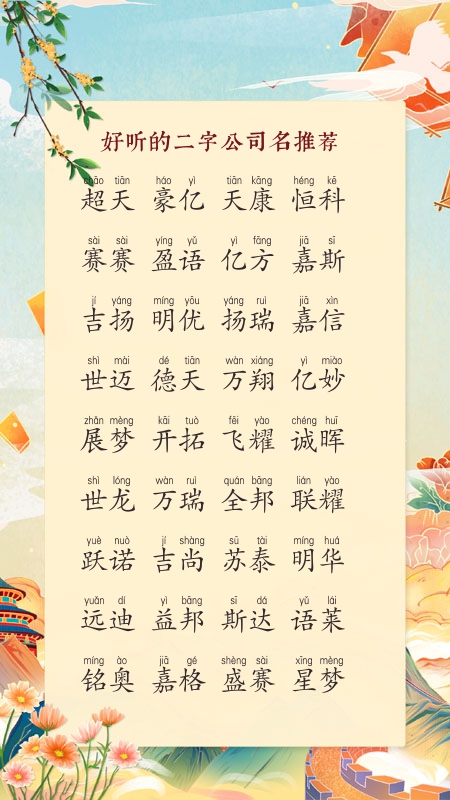 好听的二字公司名推荐
chāo tiān háo yì tiān kāng héng kē
超天 豪亿 天康 恒科
sài sài yíng yǔ yì fāng jiā sī
赛赛 盈语 亿方 嘉斯
jí yáng míng yōu yáng ruì jiā xìn
吉扬 明优 扬瑞 嘉信
shì mài dé tiān wàn xiáng yì miào
世迈 德天 万翔 亿妙
zhǎn mèng kāi tuò fēi yào chéng huī
展梦 开拓 飞耀 诚晖
shì lóng wàn ruì quán bāng lián yào
世龙 万瑞 全邦 联耀
yuè nuò jí shàng sū tài míng huá
跃诺 吉尚 苏泰 明华
yuǎn dí yì bāng sī dá yǔ lái
远迪 益邦 斯达 语莱
míng ào jiā gé shèng sài xīng mèng
铭奥 嘉格 盛赛 星梦